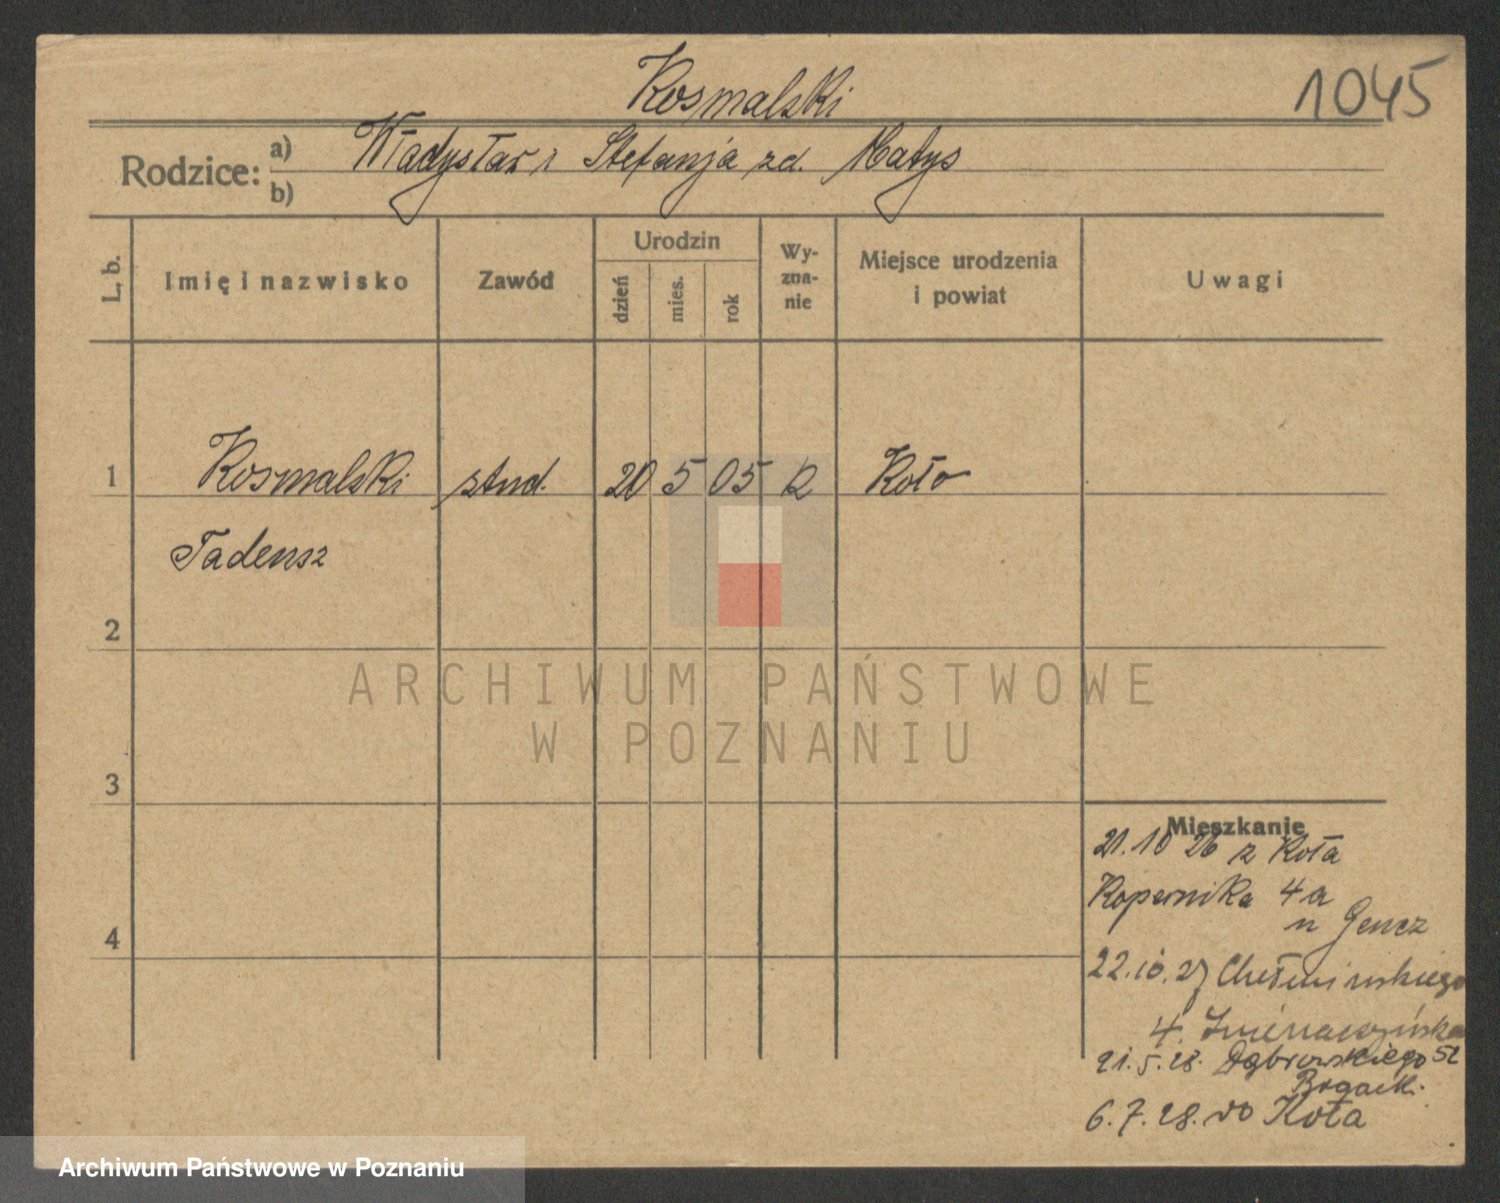 Kosmalski
1045
Rodzice: a) Władysław i Stefanja zd. Matys
b)
L. b.
Imię i nazwisko
Zawód
Urodzin
dzień
mies.
rok
Wy-
zna-
nie
Miejsce urodzenia
i powiat
Uwagi
1 Kosmalski stud. 20 5 05 R Koło
Tadeusz
2
3
4
ARCHIWUM PAŃSTWOWE
W POZNANIU
Mieszkanie
21.10 26 z Koła
Kopernika 4a
u Gencz
22.10.27 Chełmińskiego
4.
21.5.28. Dąbrowskiego 52
6.7.28. do Koła
Archiwum Państwowe w Poznaniu